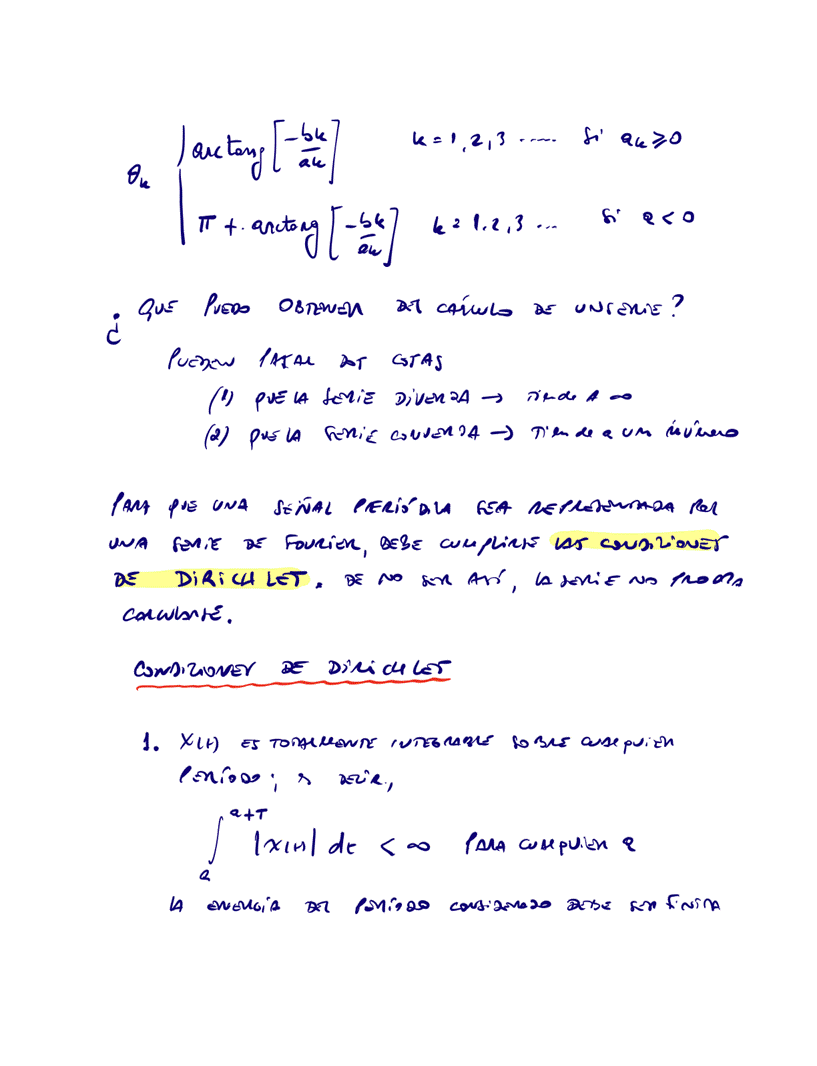 θk { arctang [-bk/ak] k = 1, 2, 3 ..... Si ak ≥ 0
π + arctang [-bk/ak] k = 1, 2, 3 ... Si a < 0
¿ QUE PUEDO OBTENER DEL CÁLCULO DE UN SERIE?
PUEDEN PASAR DOS COSAS
(1) QUE LA SERIE DIVERJA → Tiende A ∞
(2) QUE LA SERIE CONVERJA → Tiende a un número
PARA QUE UNA SEÑAL PERIÓDICA SEA REPRESENTADA POR
UNA SERIE DE FOURIER, DEBE CUMPLIRSE LAS CONDICIONES
DE DIRICHLET. DE NO SER ASÍ, LA SERIE NO PODRÍA
CALCULARSE.
CONDICIONES DE DIRICHLET
1. X(t) ES TOTALMENTE INTEGRABLE SOBRE CUALQUIER
PERÍODO; ES DECIR,
∫ₐ^(a+T) |X(t)| dt < ∞ PARA CUALQUIER a
LA ENERGÍA DEL PERÍODO CONSIDERADO DEBE SER FINITA